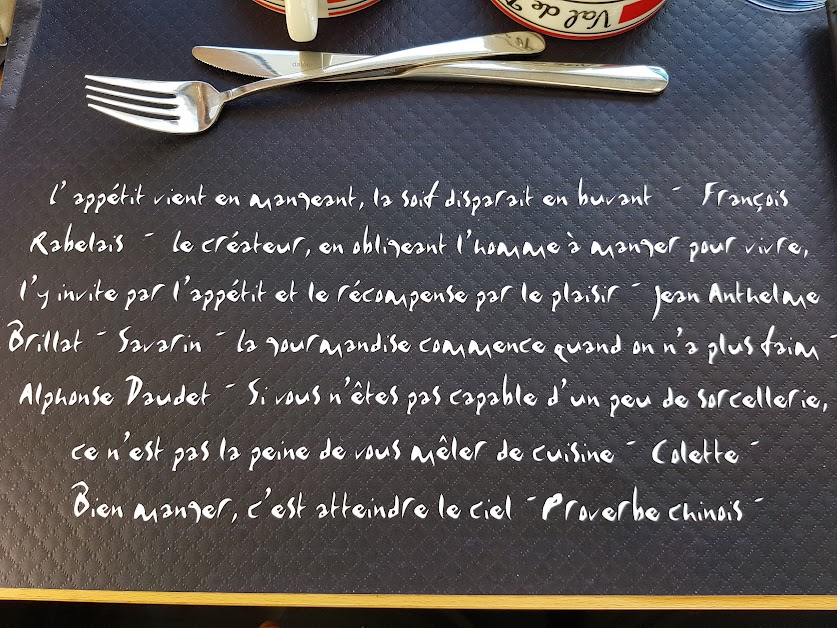 Val de
l'appétit vient en mangeant, la soif disparait en buvant - François
Rabelais - le créateur, en obligeant l'homme à manger pour vivre,
l'y invite par l'appétit et le récompense par le plaisir - Jean Anthelme
Brillat - Savarin - la gourmandise commence quand on n'a plus faim -
Alphonse Daudet - Si vous n'êtes pas capable d'un peu de sorcellerie,
ce n'est pas la peine de vous mêler de cuisine - Colette -
Bien manger, c'est atteindre le ciel - Proverbe chinois -